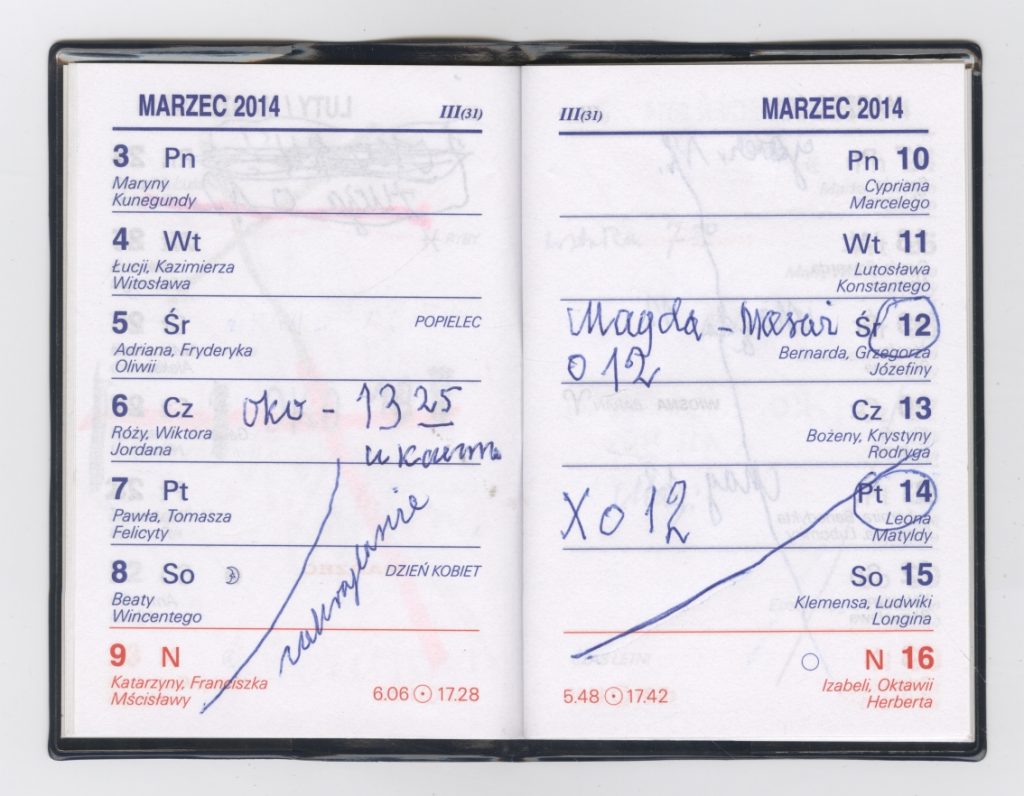 MARZEC 2014 III(31)
3 Pn
Maryny
Kunegundy
4 Wt
Łucji, Kazimierza
Witosława
5 Śr POPIELEC
Adriana, Fryderyka
Oliwii
6 Cz oko - 13 25
Róży, Wiktora
Jordana u Kaźm
7 Pt
Pawła, Tomasza
Felicyty
8 So DZIEŃ KOBIET
Beaty
Wincentego
zakraplanie
9 N
Katarzyny, Franciszka
Mścisławy 6.06 17.28
III(31) MARZEC 2014
Pn 10
Cypriana
Marcelego
Wt 11
Lutosława
Konstantego
Magda - Masaż Śr 12
o 12 Bernarda, Grzegorza
Józefiny
Cz 13
Bożeny, Krystyny
Rodryga
X o 12 Pt 14
Leona
Matyldy
So 15
Klemensa, Ludwiki
Longina
N 16
Izabeli, Oktawii
5.48 17.42 Herberta